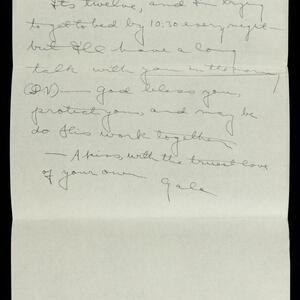 Its twelve, and I'm trying
to get to bed by 10:30 every night -
but I'll have a long
talk with you in the morning
(DV) — god bless you,
protect you, and may be
do this work together
— A kiss, with the truest love
of your own
Gala